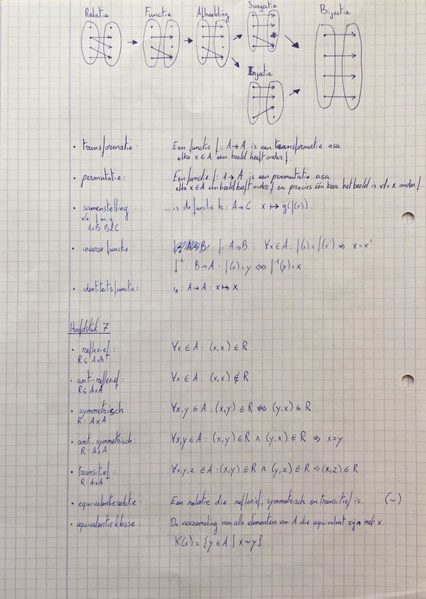 Relatie Functie Afbeelding Surjectie Bijectie
Injectie
• transformatie: Een functie f: A→A is een transformatie asa
elke x∈A een beeld heeft onder f.
• permutatie: Een functie f: A→A is een permutatie asa
elke x∈A een beeld heeft onder f en precies één keer het beeld is v/e x onder f.
• samenstelling is de functie h: A→C x↦g(f(x)).
v/e f en g
A→B B→C
• inverse functie: f: A→B ∀x∈A: f(x)=f(x') ⇒ x=x'
f⁻¹ B→A: f(x)=y ⇔ f⁻¹(y)=x
• identiteitsfunctie: i₀: A→A: x↦x
Hoofdstuk 7
• reflexief: ∀x∈A: (x,x)∈R
R⊆A×A
• anti-reflexief ∀x∈A: (x,x)∉R
R⊆A×A
• symmetrisch ∀x,y∈A: (x,y)∈R ⇔ (y,x)∈R
R: A×A
• anti-symmetrisch: ∀x,y∈A: (x,y)∈R ∧ (y,x)∈R ⇒ x=y
R: A×A
• transitief: ∀x,y,z∈A: (x,y)∈R ∧ (y,z)∈R ⇒ (x,z)∈R
R: A×A
• equivalentierelatie: Een relatie die reflexief, symmetrisch en transitief is. (~)
• equivalentieklasse: De verzameling van alle elementen van A die equivalent zijn met x.
K(x)={y∈A | x~y}